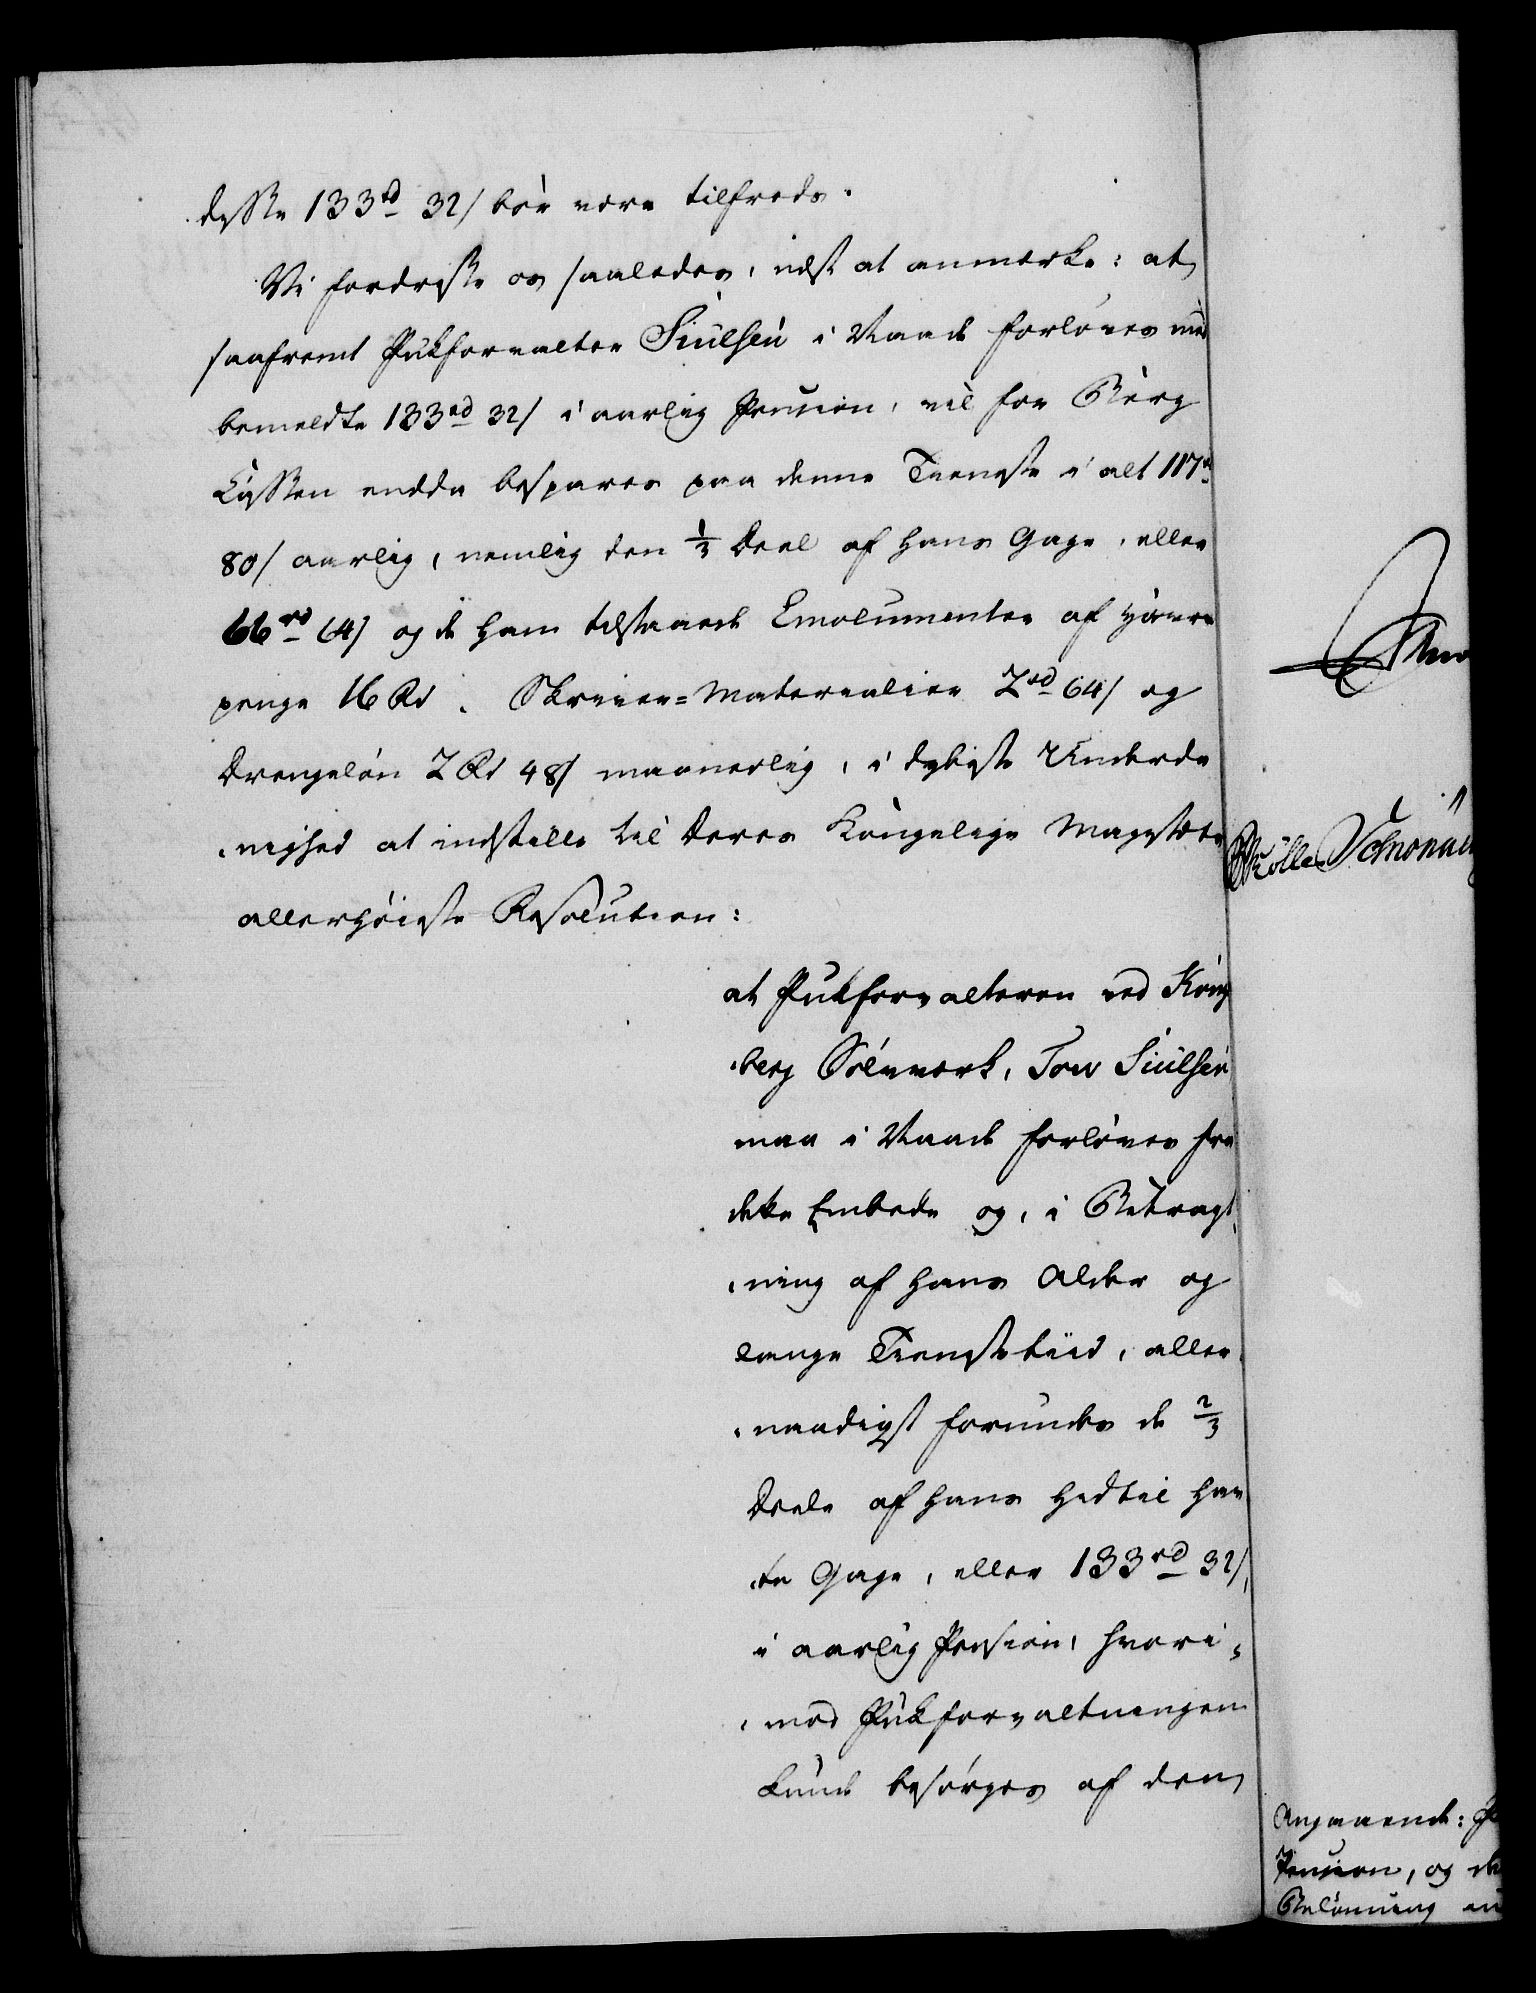 desse 133 rd 32 s bör være tilfreds.
Vi fordriste os saaledes, næst at anmærke: at
saafremt Pukforvalter Siulsen i Naade forløves med
bemeldte 133 rd 32 s i aarlig Pension, vil for Berg
Cassen endda bespares paa denne Tieneste i alt 117 rd
80 s aarlig, nemlig den ⅓ Deel af hans Gage, eller
66 rd 64 s og de ham tilstaaede Emolumenter af
penge 16 Rd. Skriver=Materialier 2 rd 64 s og
Drengeløn 2 Rd 48 s maanedlig, i dybeste Underda
nighed at indstille til Deres Kongelige Majestæts
allerhöieste Resolution:
at Pukforvalteren ved Kongs
berg Sölvværk, Tow Siulsen
maa i Naade forløves fra
dette Embede og, i Betragt
ning af hans Alder og
lange Tieneste tiid, aller
naadigst forundes de ⅔
Deele af hans hidtil hav
te Gage, eller 133 rd 32 s,
i aarlig Pension, hvori
mod Pukforvaltningen
kunde besørges af den
Möller Schönau
Angaaende:
Pension, og
Belønning